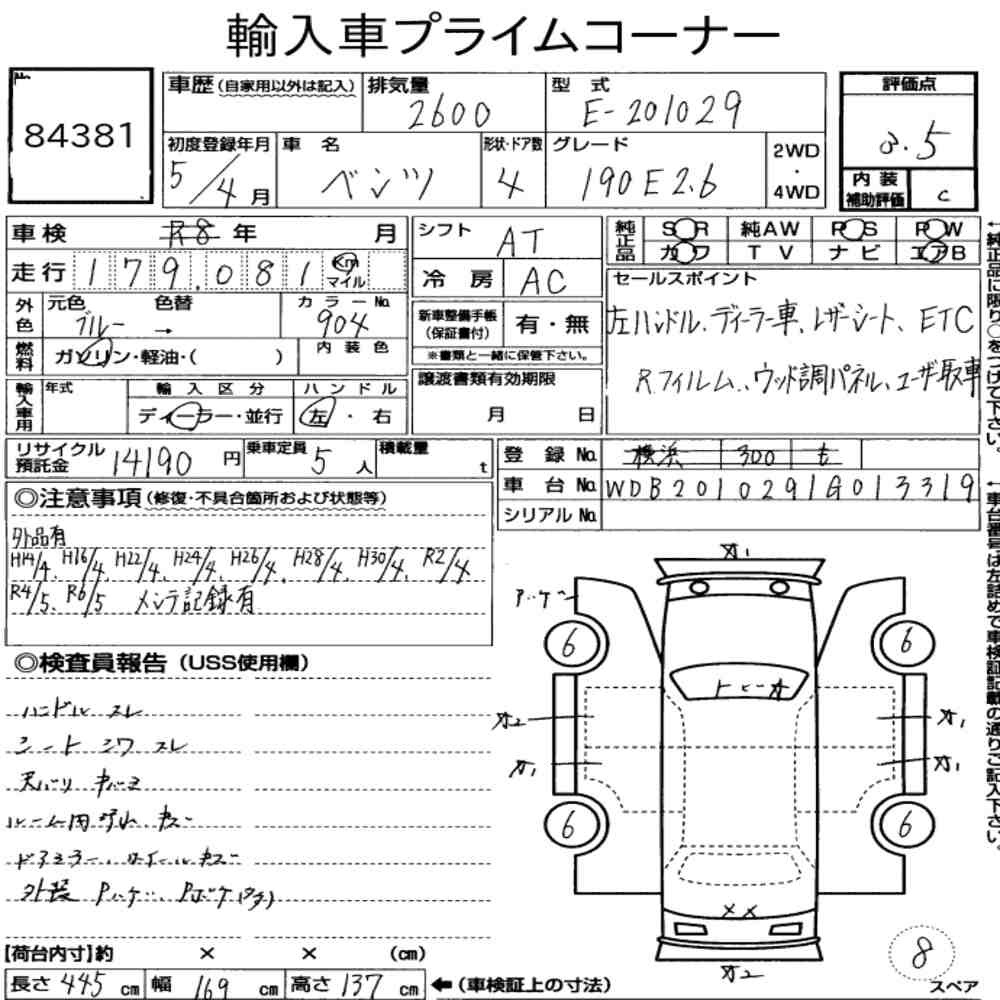 輸入車プライムコーナー
No.
84381
車歴 (自家用以外は記入)
排気量 2600
型式 E-201029
評価点 3.5
内装補助評価 C
初度登録年月 5/4月
車名 ベンツ
形状・ドア数 4
グレード 190E2.6
2WD・4WD
車検 R8年 月
走行 179.081 Km マイル
シフト AT
冷房 AC
純正品 SR 純AW PS PW
カワ TV ナビ エアB
外色 元色 ブルー 色替 →
カラーNo. 904
燃料 ガソリン・軽油・( )
内装色
新車整備手帳(保証書付) 有・無
※書類と一緒に保管下さい。
セールスポイント
左ハンドル、ディーラー車、レザーシート、ETC
Rフィルム、ウッド調パネル、ユーザ取車
輸入車用 年式
輸入区分 ディーラー・並行
ハンドル 左・右
譲渡書類有効期限
月 日
リサイクル預託金 14190円
乗車定員 5人
積載量 t
登録No. 横浜 300 も
車台No. WDB2010291G013319
シリアルNo.
←純正品に限り○をつけて下さい。
←車台番号は左詰めで車検証記載の通りご記入下さい。
◎注意事項 (修復・不具合箇所および状態等)
外品有
H14/4、H16/4、H22/4、H24/4、H26/4、H28/4、H30/4、R2/4
R4/5、R6/5 メンテ記録有
◎検査員報告 (USS使用欄)
ハンドル スレ
シート シワ スレ
ルーム内
外装
オ1
6 6
オ2 オ1
オ1 オ1
6 6
××
オ2
8
スペア
【荷台内寸】約 × × (cm)
長さ 445 cm 幅 169 cm 高さ 137 cm ←(車検証上の寸法)